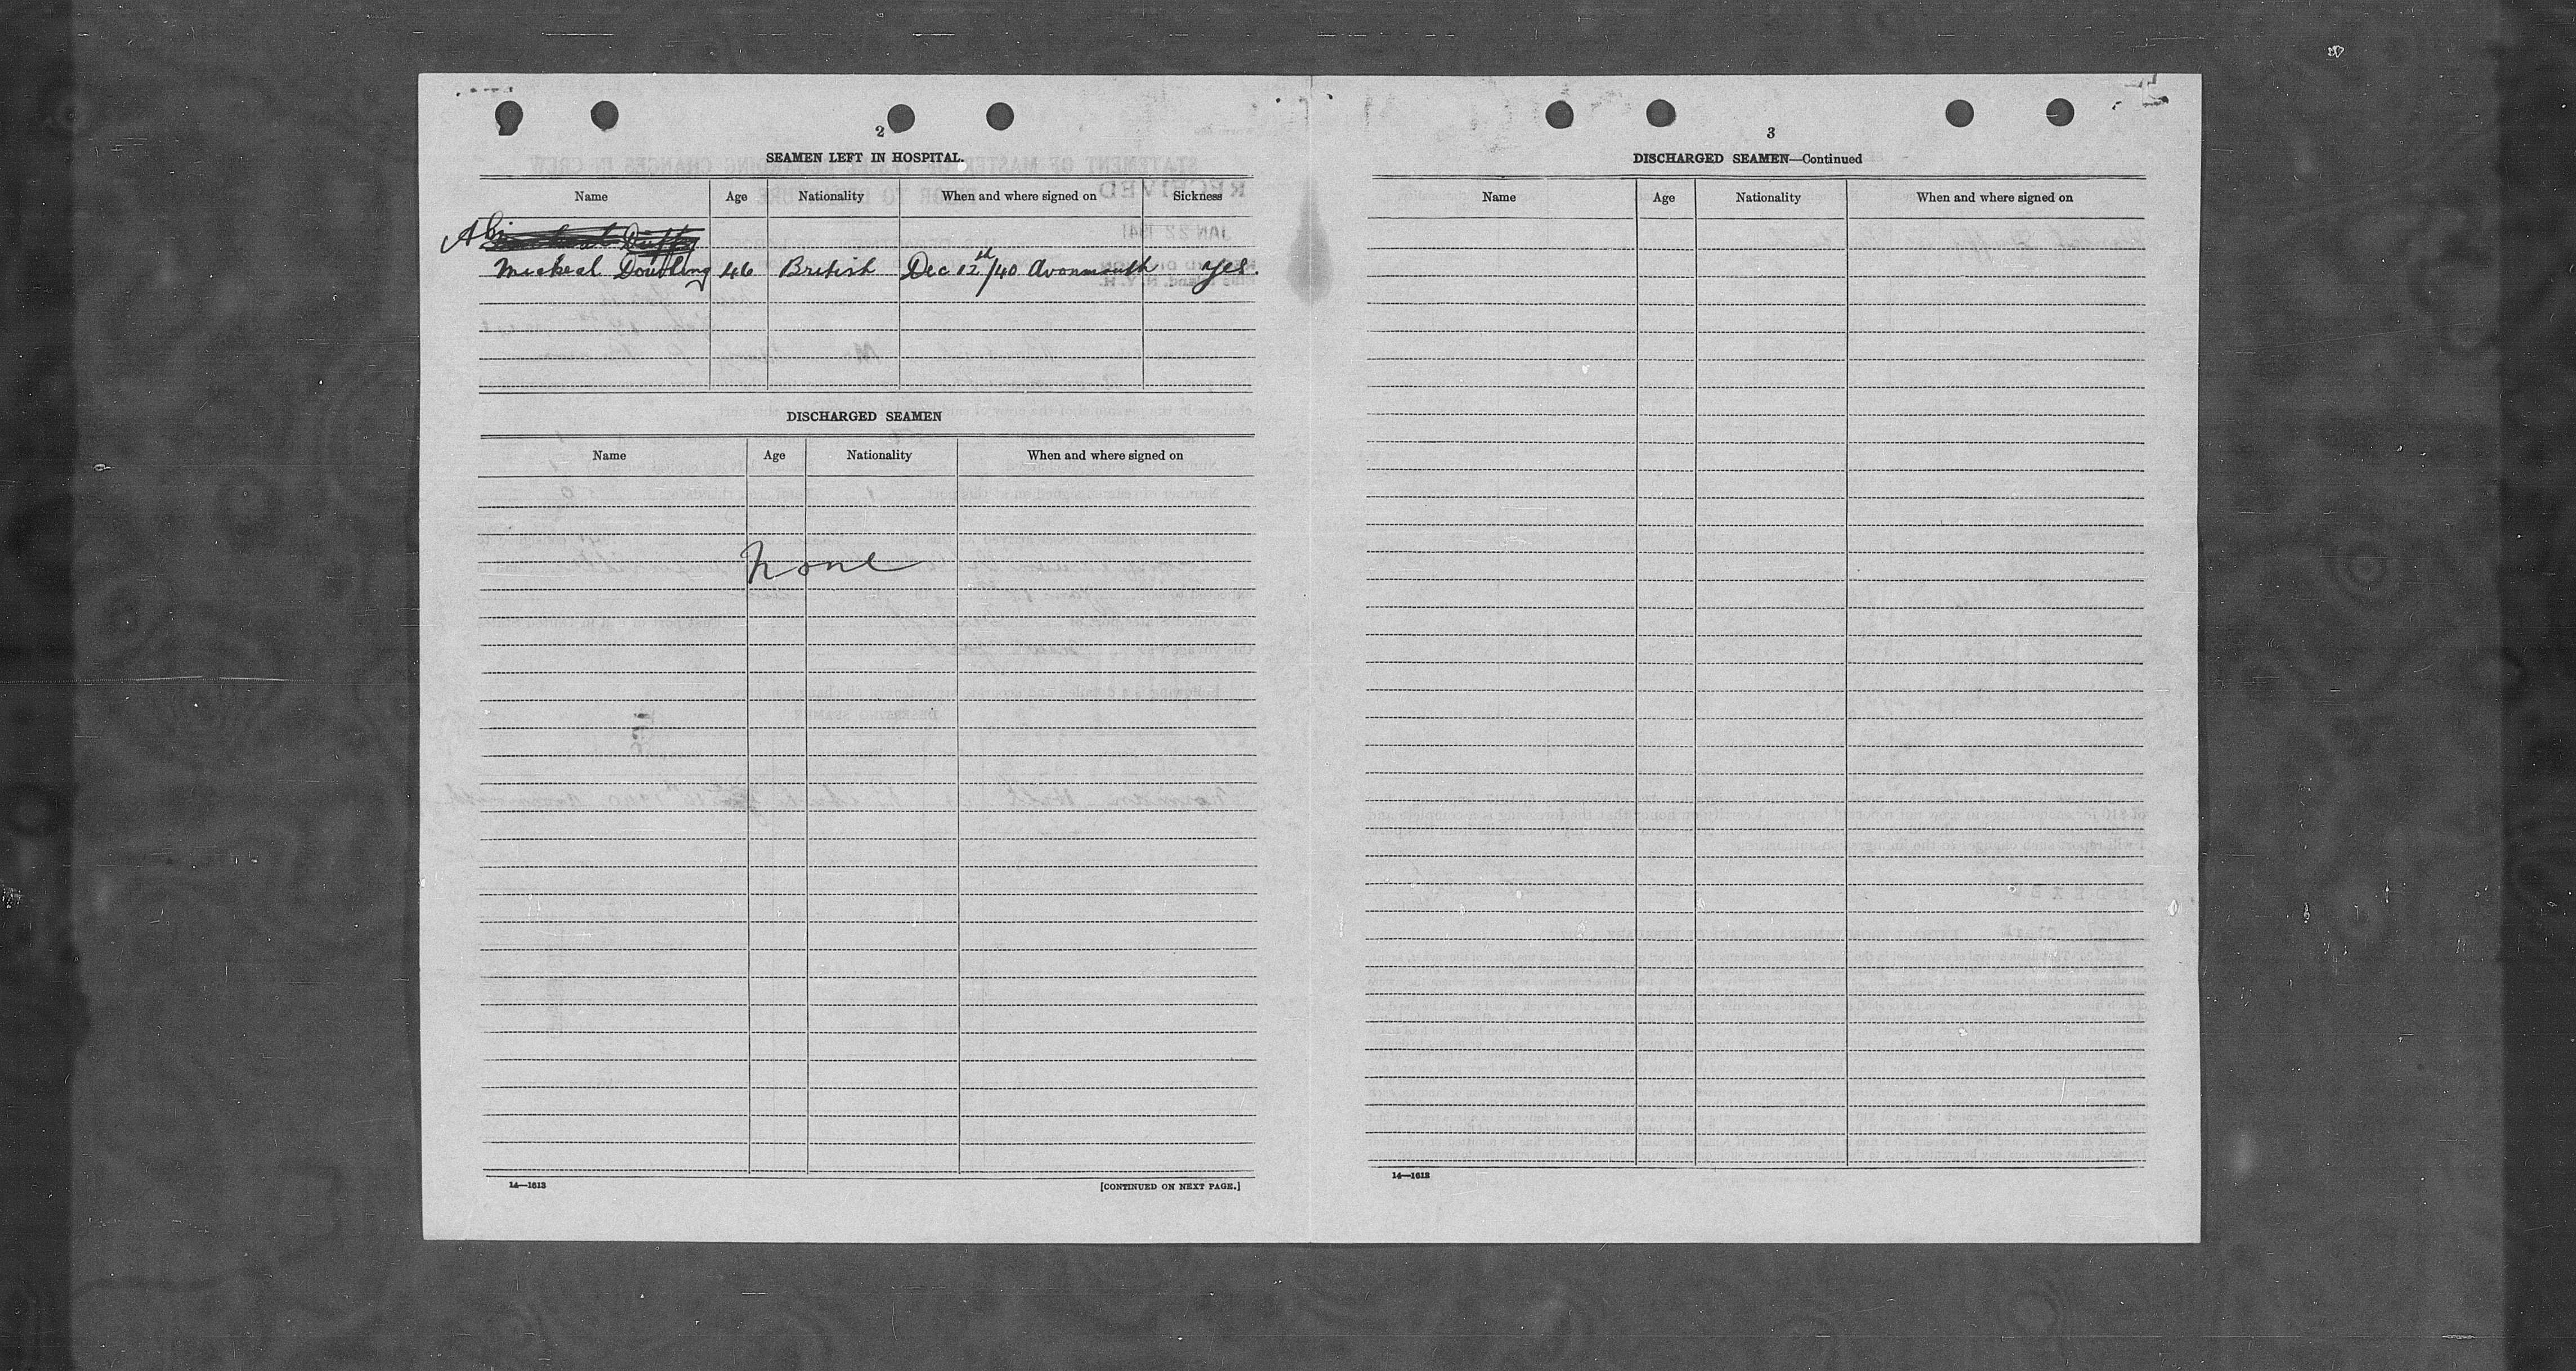 2
SEAMEN LEFT IN HOSPITAL.
Name Age Nationality When and where signed on Sickness
Duffy
Mickeal Dowling 46 British Dec 12th/40 Avonmouth yes.
DISCHARGED SEAMEN
Name Age Nationality When and where signed on
None
14—1613
[CONTINUED ON NEXT PAGE.]
3
DISCHARGED SEAMEN—Continued
Name Age Nationality When and where signed on
14—1613